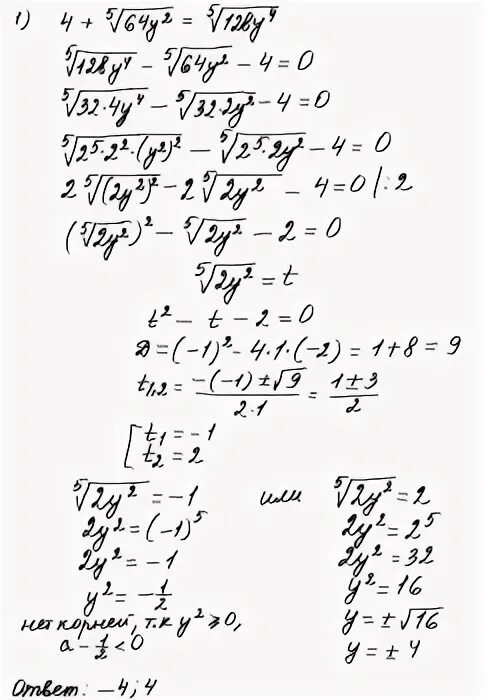 1) 4 + ⁵√(64y²) = ⁵√(128y⁴)
⁵√(128y⁴) − ⁵√(64y²) − 4 = 0
⁵√(32·4y⁴) − ⁵√(32·2y²) − 4 = 0
⁵√(2⁵·2²·(y²)²) − ⁵√(2⁵·2y²) − 4 = 0
2 ⁵√((2y²)²) − 2 ⁵√(2y²) − 4 = 0 |:2
(⁵√(2y²))² − ⁵√(2y²) − 2 = 0
⁵√(2y²) = t
t² − t − 2 = 0
D = (−1)² − 4·1·(−2) = 1 + 8 = 9
t₁,₂ = (−(−1) ± √9)/(2·1) = (1 ± 3)/2
[ t₁ = −1
t₂ = 2
⁵√(2y²) = −1 или ⁵√(2y²) = 2
2y² = (−1)⁵ 2y² = 2⁵
2y² = −1 2y² = 32
y² = −1/2 y² = 16
нет корней, т.к y² ⩾ 0, y = ±√16
а −1/2 < 0 y = ± 4
Ответ: −4; 4